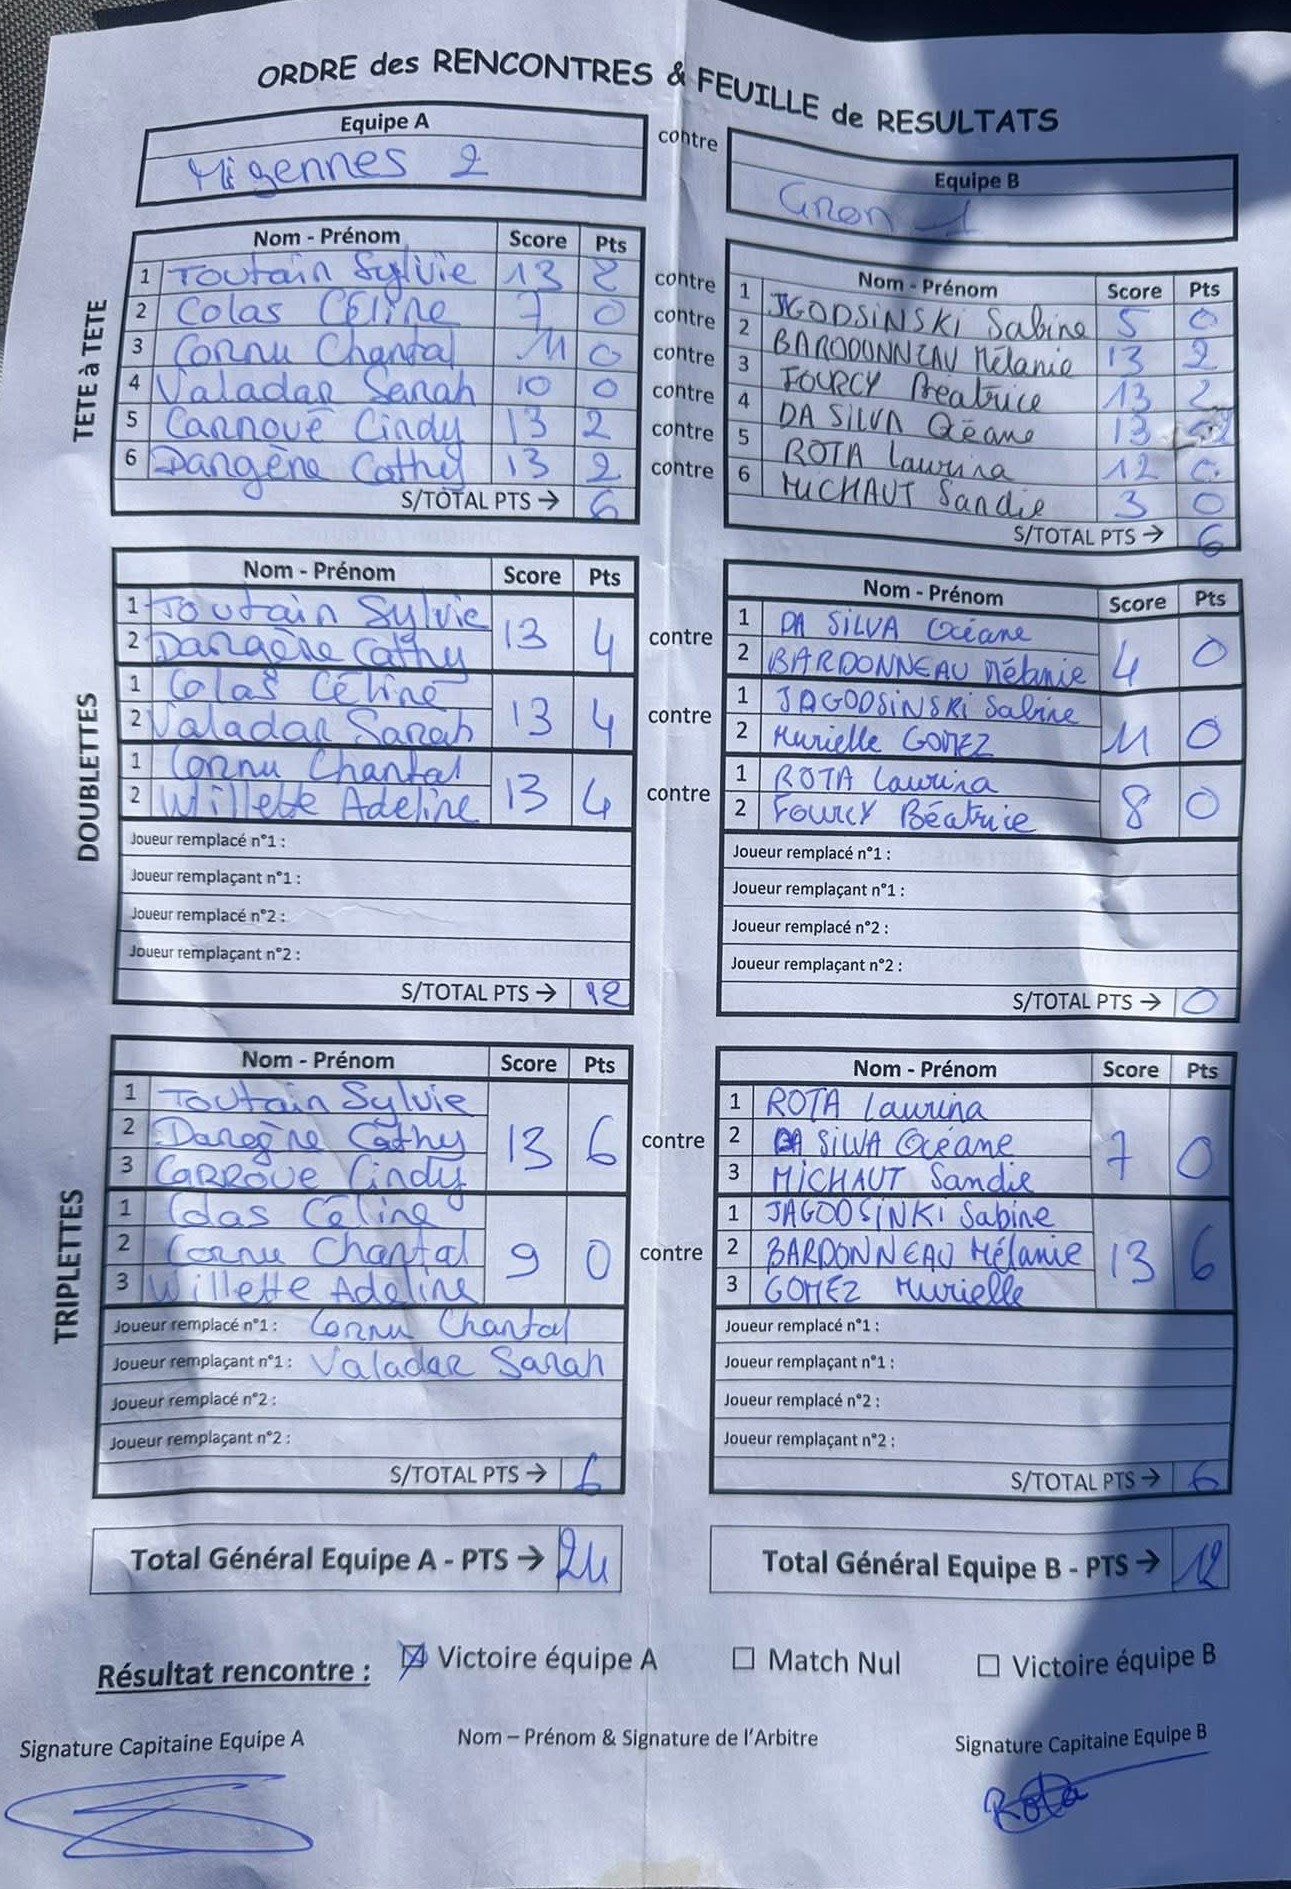 ORDRE des RENCONTRES & FEUILLE de RESULTATS
Equipe A
Migennes 2
contre
Equipe B
Gron 1
TETE à TETE
Nom - Prénom Score Pts
1 Toutain Sylvie 13 2
2 Colas Céline 7 0
3 Cornu Chantal 11 0
4 Valadar Sarah 10 0
5 Carroué Cindy 13 2
6 Dangène Cathy 13 2
S/TOTAL PTS → 6
contre
contre
contre
contre
contre
contre
Nom - Prénom Score Pts
1 JGODSINSKI Sabine 5 0
2 BARODONNEAU Mélanie 13 2
3 FOURCY Béatrice 13 2
4 DA SILVA Océane 13
5 ROTA Laurina 12 0
6 MICHAUT Sandie 3 0
S/TOTAL PTS → 6
DOUBLETTES
Nom - Prénom Score Pts
1 Toutain Sylvie
2 Dangène Cathy
13 4
1 Colas Céline
2 Valadar Sarah
13 4
1 Cornu Chantal
2 Willette Adeline
13 4
Joueur remplacé n°1 :
Joueur remplaçant n°1 :
Joueur remplacé n°2 :
Joueur remplaçant n°2 :
S/TOTAL PTS → 12
contre
contre
contre
Nom - Prénom Score Pts
1 DA SILVA Océane
2 BARDONNEAU Mélanie
4 0
1 JAGODSINSKI Sabine
2 Murielle GOMEZ
11 0
1 ROTA Laurina
2 FOURCY Béatrice
8 0
Joueur remplacé n°1 :
Joueur remplaçant n°1 :
Joueur remplacé n°2 :
Joueur remplaçant n°2 :
S/TOTAL PTS → 0
TRIPLETTES
Nom - Prénom Score Pts
1 Toutain Sylvie
2 Dangène Cathy
3 CARROUE Cindy
13 6
1 Colas Céline
2 Cornu Chantal
3 Willette Adeline
9 0
Joueur remplacé n°1 : Cornu Chantal
Joueur remplaçant n°1 : Valadar Sarah
Joueur remplacé n°2 :
Joueur remplaçant n°2 :
S/TOTAL PTS → 6
contre
contre
Nom - Prénom Score Pts
1 ROTA Laurina
2 DA SILVA Océane
3 MICHAUT Sandie
7 0
1 JAGODSINKI Sabine
2 BARDONNEAU Mélanie
3 GOMEZ Murielle
13 6
Joueur remplacé n°1 :
Joueur remplaçant n°1 :
Joueur remplacé n°2 :
Joueur remplaçant n°2 :
S/TOTAL PTS → 6
Total Général Equipe A - PTS → 24
Total Général Equipe B - PTS → 12
Résultat rencontre : ☒ Victoire équipe A ☐ Match Nul ☐ Victoire équipe B
Signature Capitaine Equipe A
Nom – Prénom & Signature de l'Arbitre
Signature Capitaine Equipe B
Rota